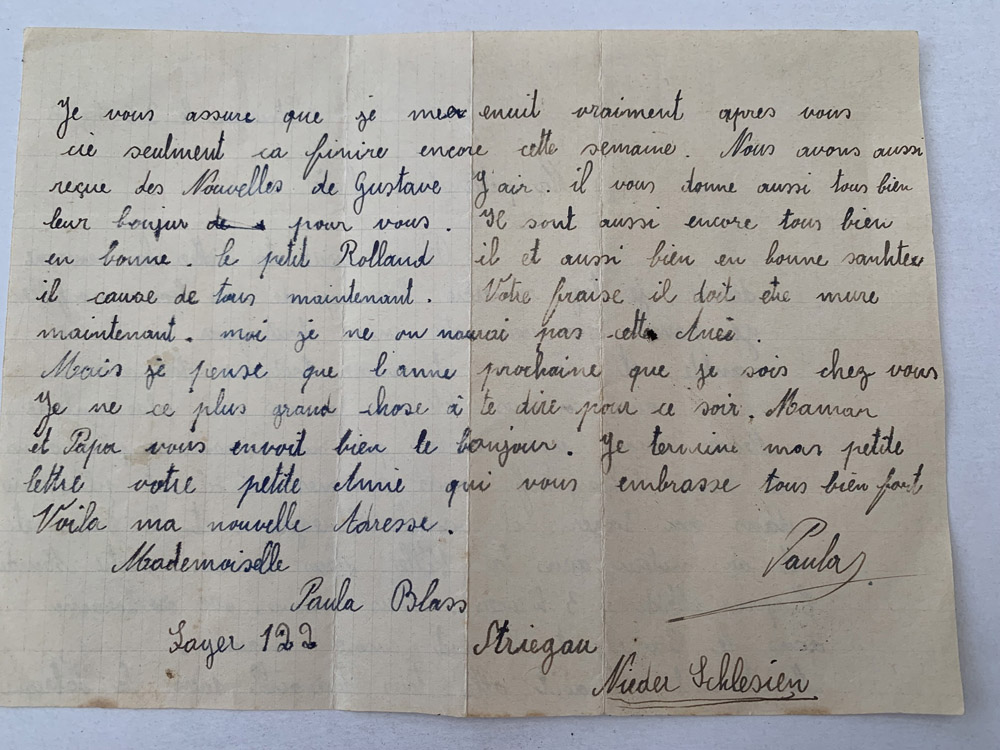 Je vous assure que je me enuit vraiment apres vous
cié seulment ca finire encore cette semaine. Nous avons aussi
reçue des Nouvelles de Gustave Y'air. il vous donne aussi tous bien
leur bonjur pour vous. Il sont aussi encore tous bien
en bonne. le petit Rolland il et aussi bien en bonne sanhtex
il cause de tous maintenant. Votre fraise il doit etre mure
maintenant. moi je ne on naurai pas cette Aneé.
Mais je pense que l'anne prochaine que je sois chez vous
Je ne ce plus grand chose à te dire pour ce soir. Maman
et Papa vous envoit bien le bonjour. Je termine mas petite
lettre votre petite Amie qui vous embrasse tous bien fort
Voila ma nouvelle Adresse.
Paula.
Mademoiselle
Paula Blass
Lager 122 Striegau
Nieder Schlesien